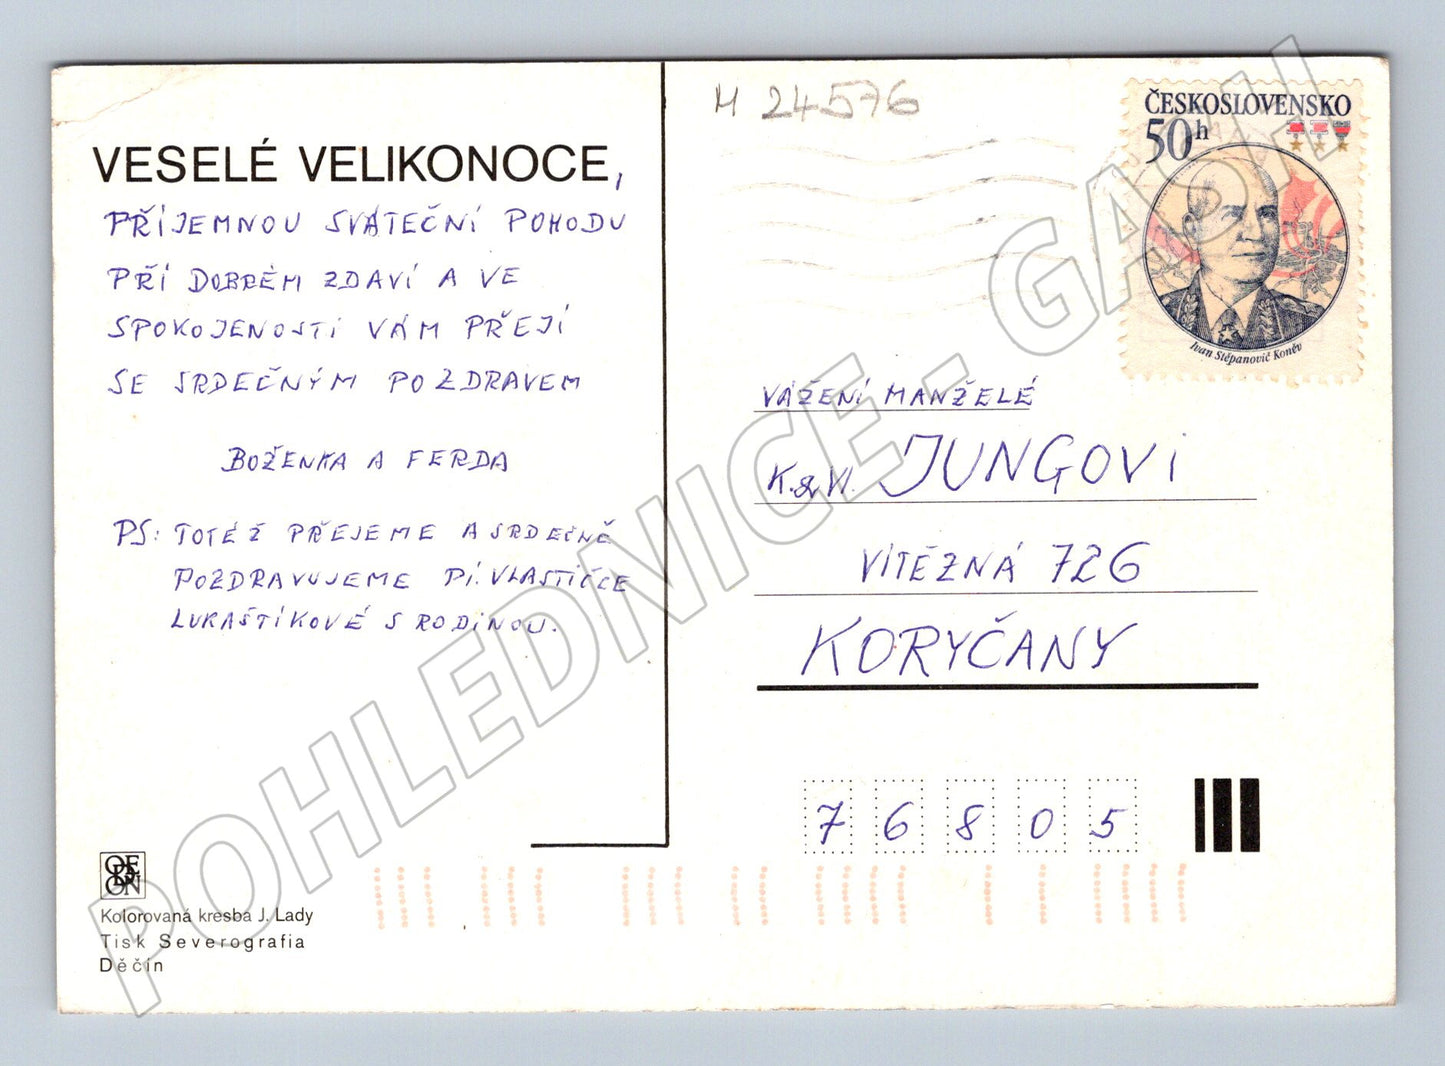 VESELÉ VELIKONOCE,
PŘÍJEMNOU SVÁTEČNÍ POHODU
PŘI DOBRÉM ZDAVÍ A VE
SPOKOJENOSTI VÁM PŘEJÍ
SE SRDEČNÝM POZDRAVEM
BOŽENKA A FERDA
PS: TOTÉŽ PŘEJEME A SRDEČNĚ
POZDRAVUJEME PÍ. VLASTIČCE
LUKAŠTÍKOVÉ S RODINOU.
ODEON
Kolorovaná kresba J. Lady
Tisk Severografia
Děčín
M 24576
ČESKOSLOVENSKO
50h
Ivan Stěpanovič Koněv
VÁŽENÍ MANŽELÉ
K.&W. JUNGOVI
VÍTĚZNÁ 726
KORYČANY
76805
POHLEDNICE - GASH